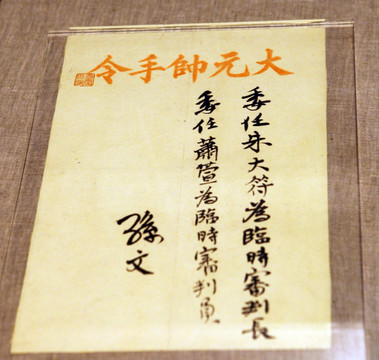 大元帥手令
委任朱大符為臨時審判長
委任蕭萱為臨時審判員
孫文